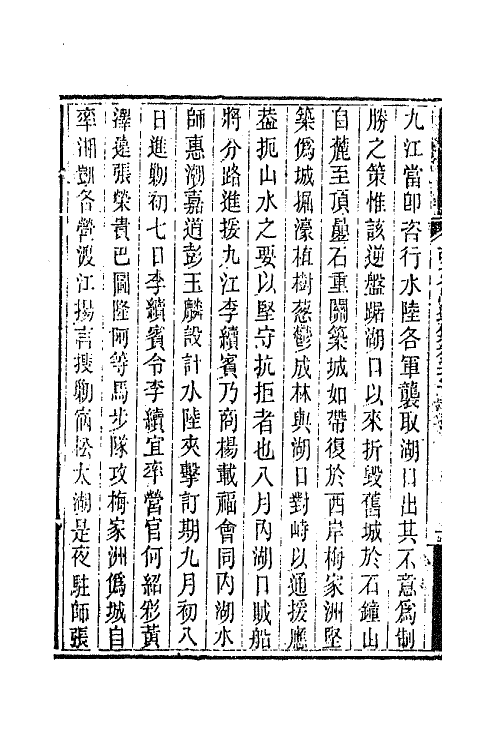 九江當卽咨行水陸各軍襲取湖口出其不意爲制
勝之策惟該逆盤踞湖口以來折毀舊城於石鐘山
自麓至頂壘石重關築城如帶復於西岸梅家洲堅
築僞城掘濠植樹葱鬱成林與湖口對峙以通援應
葢扼山水之要以堅守抗拒者也八月內湖口賊船
將分路進援九江李續賓乃商楊載福會同內湖水
師惠潮嘉道彭玉麟設計水陸夾擊訂期九月初八
日進勦初七日李續賓令李續宜率營官何紹彩黃
澤遠張榮貴巴圖隆阿等馬步隊攻梅家洲僞城自
率湘營各營渡江揚言搜勦宿松太湖是夜駐師張